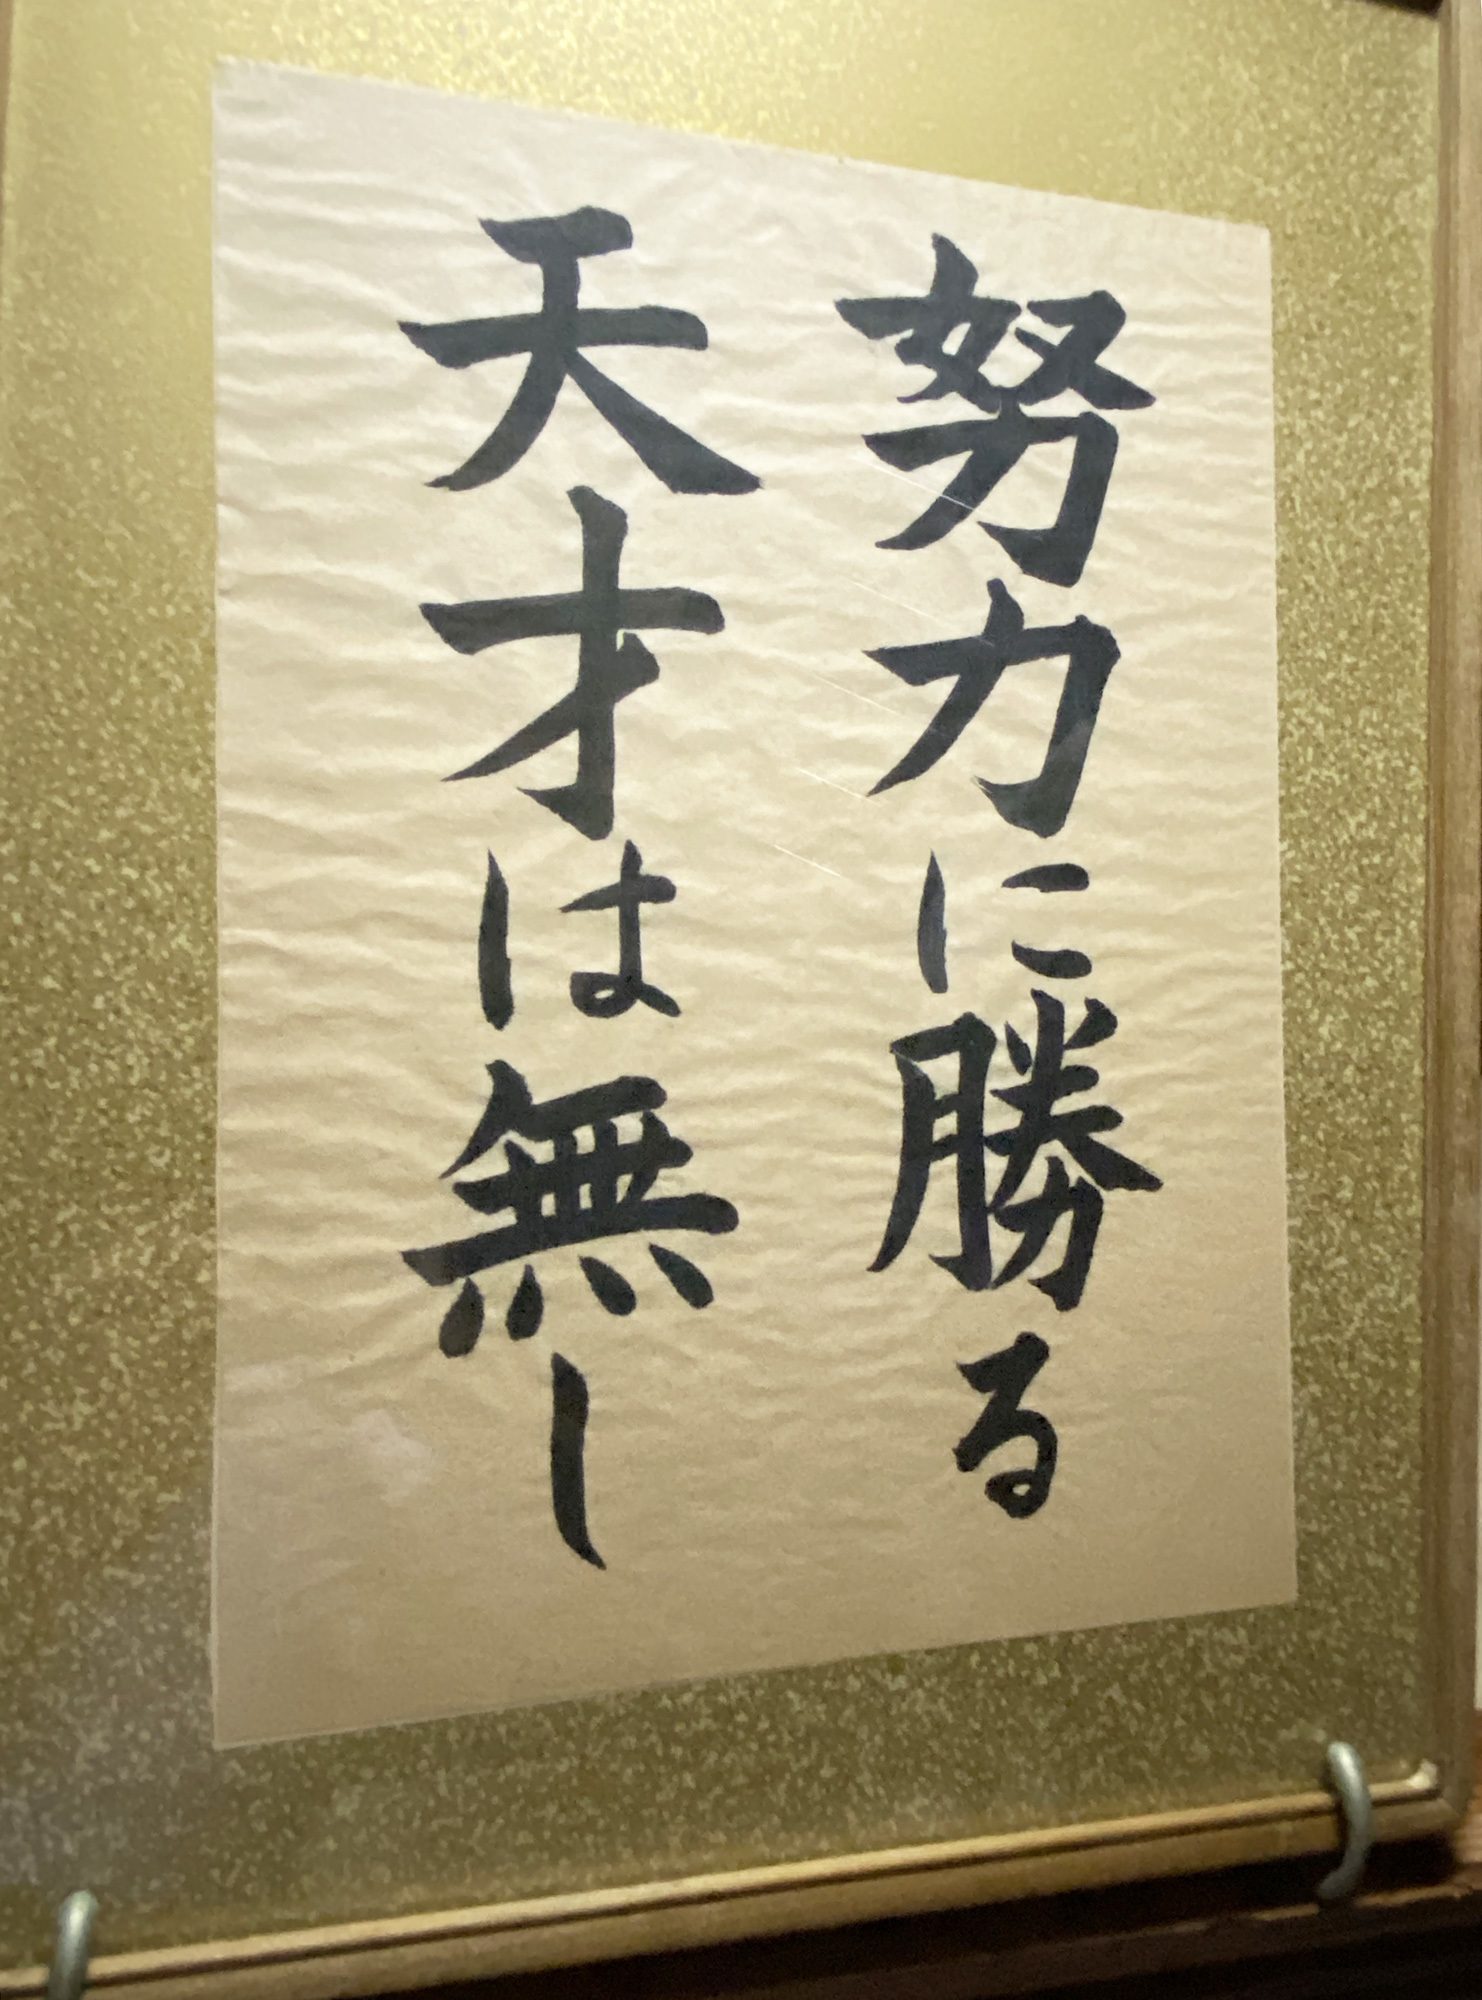 努力に勝る
天才は無し